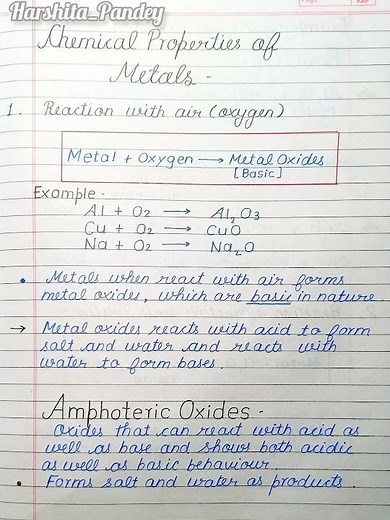 Harshita_Pandey
Chemical Properties of
Metals -
1. Reaction with air (oxygen)
Metal + Oxygen ⟶ Metal Oxides
[Basic]
Example -
Al + O₂ ⟶ Al₂O₃
Cu + O₂ ⟶ CuO
Na + O₂ ⟶ Na₂O
• Metals when react with air forms
metal oxides, which are basic in nature
→ Metal oxides reacts with acid to form
salt and water and reacts with
water to form bases.
Amphoteric Oxides -
Oxides that can react with acid as
well as base and shows both acidic
as well as basic behaviour.
• Forms salt and water as products.